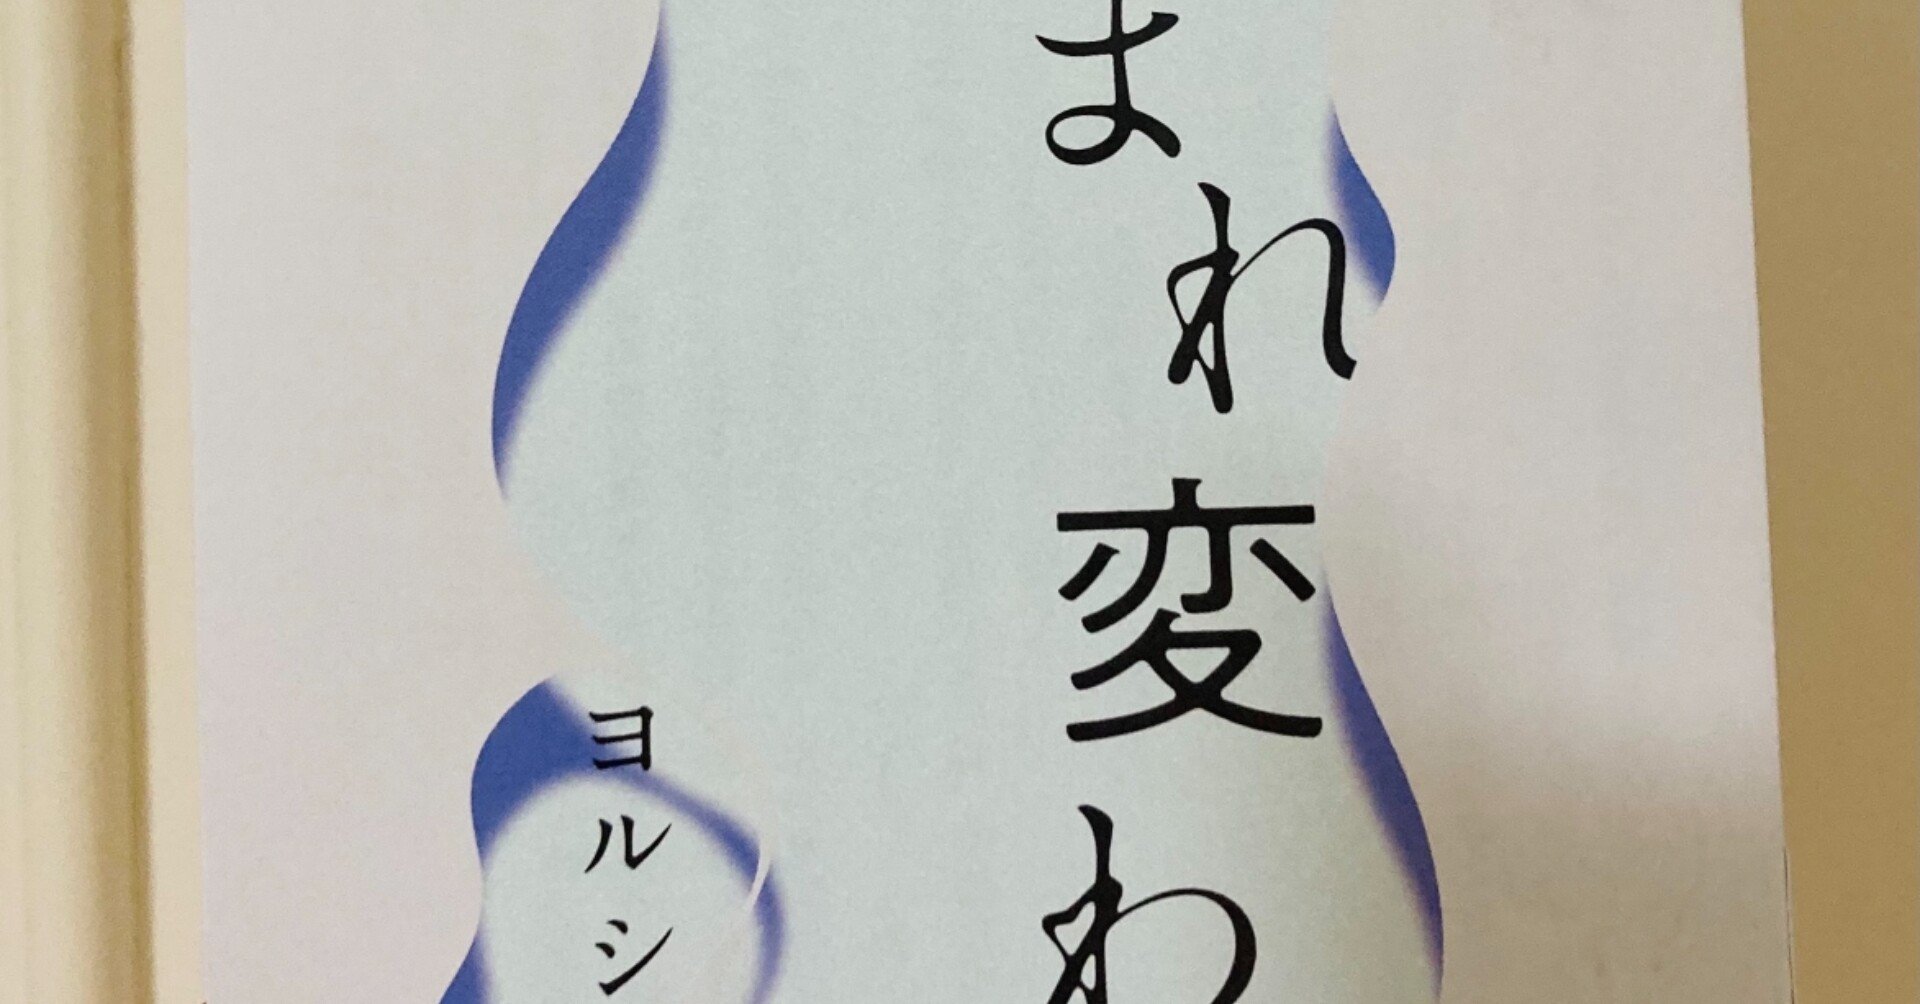 まれ変わ
ヨルシ